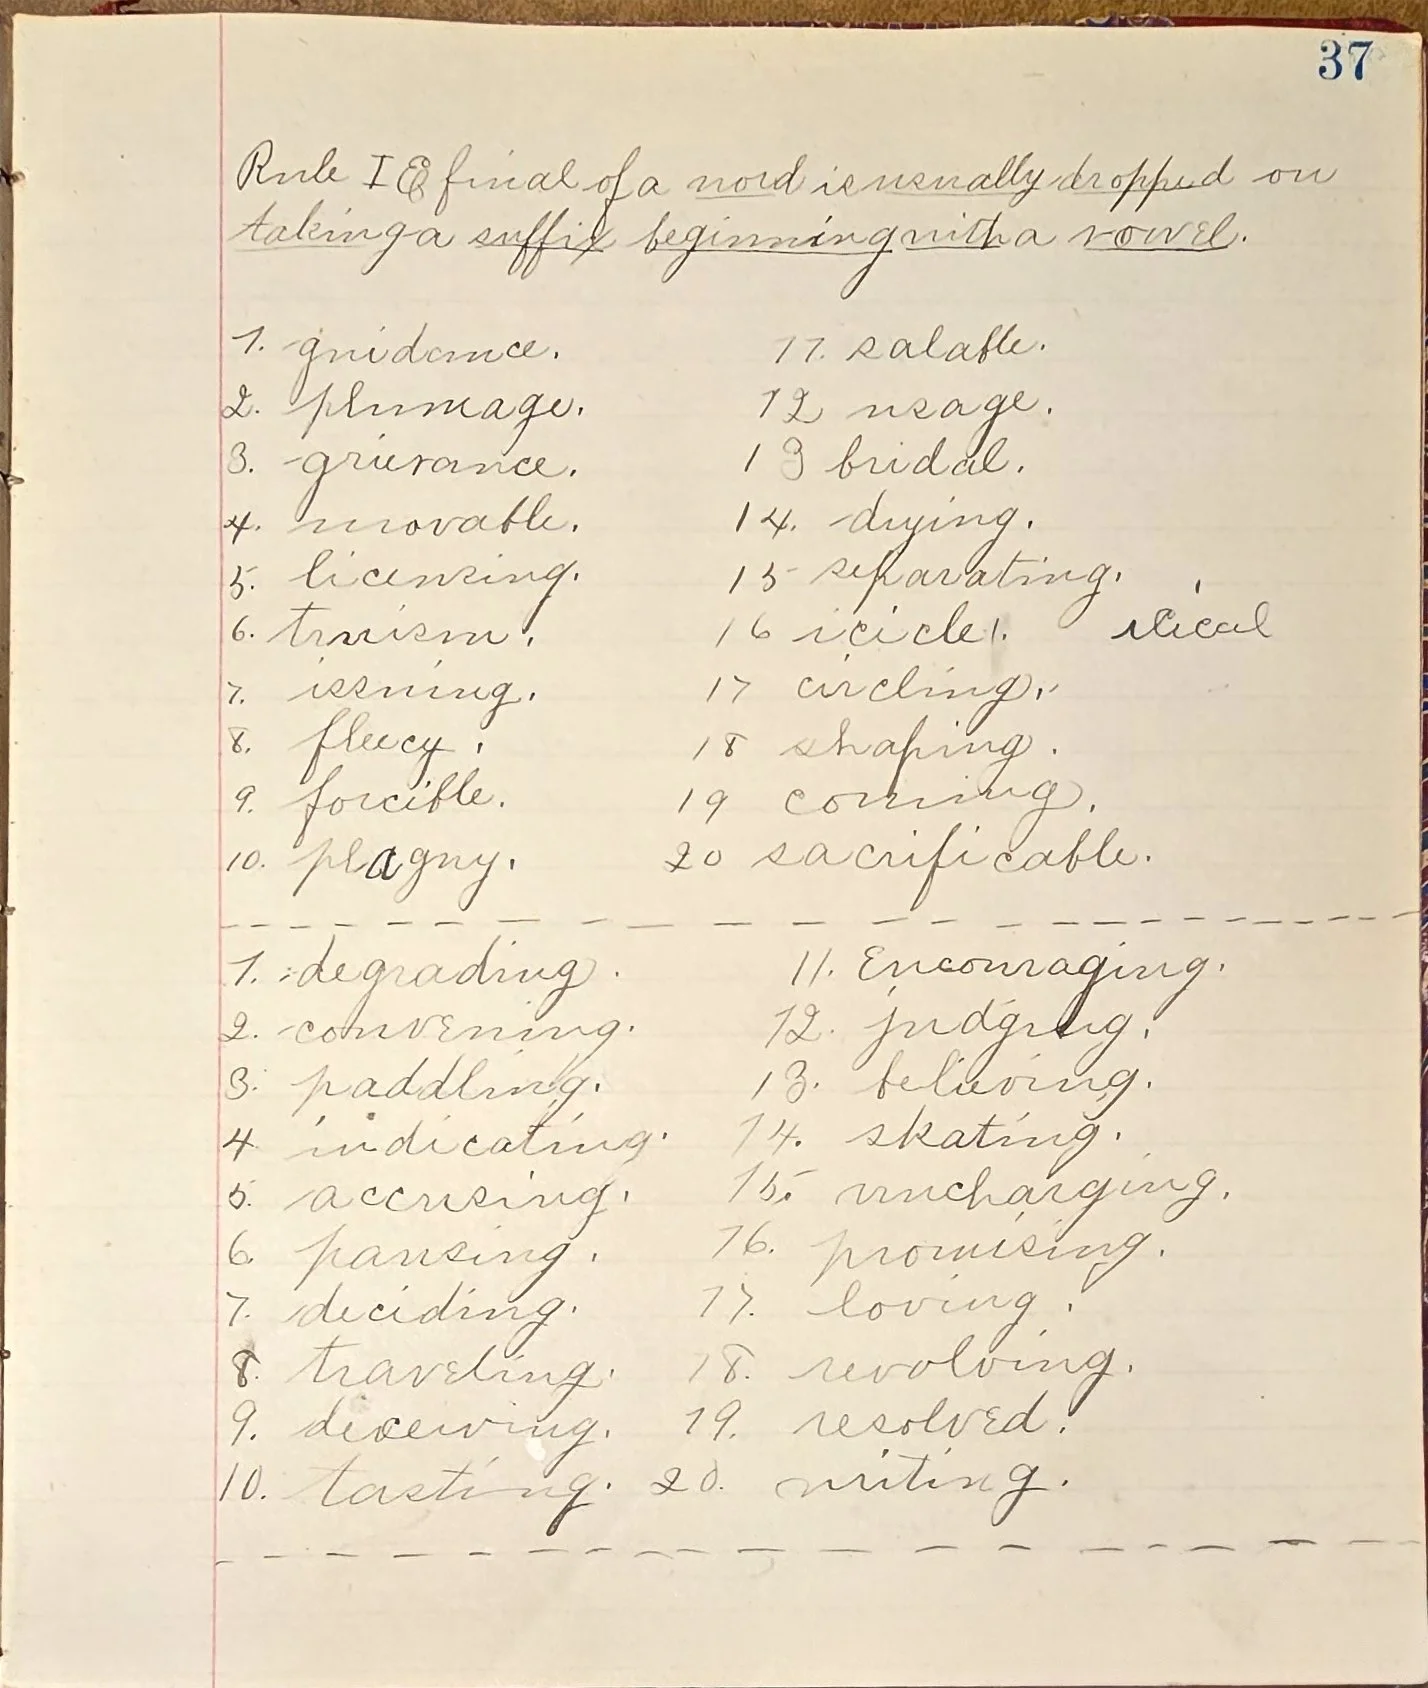 37
Rule I E final of a word is usually dropped on
taking a suffix beginning with a vowel.
1. guidance. 11. salable.
2. plumage. 12 usage.
3. grievance. 13 bridal.
4. movable. 14. drying.
5. licensing. 15 separating.
6. truism. 16 icicle.
7. issuing. 17 circling.
8. fleecy. 18 shaping.
9. forcible. 19 coming.
10. plaguy. 20 sacrificable.
1. degrading. 11. Encouraging.
2. convening. 12. judging.
3. paddling. 13. believing.
4 indicating. 14. skating.
5. accusing. 15. uncharging.
6. pausing. 16. promising.
7. deciding. 17. loving.
8. traveling. 18. revolving.
9. deceiving. 19. resolved.
10. tasting. 20. writing.